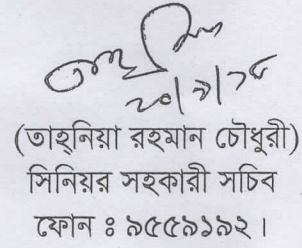 ২০/৯/১৮
(তাহ্‌নিয়া রহমান চৌধুরী)
সিনিয়র সহকারী সচিব
ফোন ঃ ৯৫৫৯১৯২।